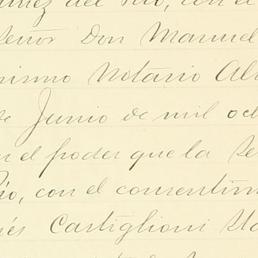 del Río, con el
Señor Don Manuel
mismo Notario Al
de Junio de mil oc
n el poder que la Se
Río, con el consentim
és Castiglioni Ma